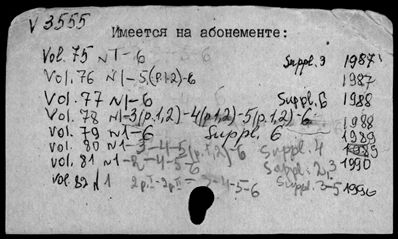 V 3555
Имеется на абонементе:
Vol. 75 N 1-6 Suppl. 1987
Vol. 76 N 1-5(p.1,2)-6 1987
Vol. 77 N 1-6 Suppl. Б 1988
Vol. 78 N 1-3(p.1,2)-4(p.1,2)-5(p.1,2)-6 1988
Vol. 79 N 1-6 Suppl. 6 1989
Vol. 80 N 1-3-4-5(p.1,2)-6 Suppl. 4 1989
Vol. 81 N 1- -4-5-6 Suppl. 2,3 1990
Vol. 82 N 1 2p.I- -4-5-6 Suppl. 3-5 1990